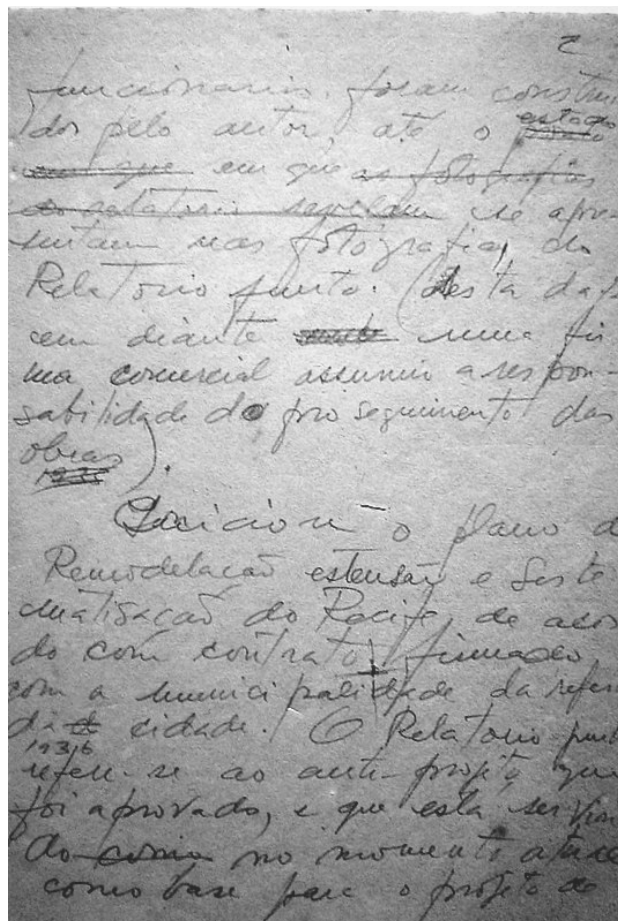 2
funcionarios, foram constru
dos pelo autor, até o estado
em que as fotografias
do relatorio revelam se apre
sentam nas fotografias do
Relatorio junto. (desta data
em diante uma fir
ma comercial assumiu a respon-
sabilidade do proseguimento das
obras).
1935
o plano d
Remodelação estensão e Siste
matisação do Recife, de acor
do com contrato firmado
com a municipalidade da refer
da cidade. O Relatorio junt
1936
refere-se ao ante-projeto, que
foi aprovado, e que está servin
do como no momento atual
como base para o projeto de